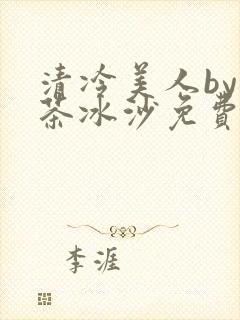 清冷美人by
茶冰沙免费
李涯